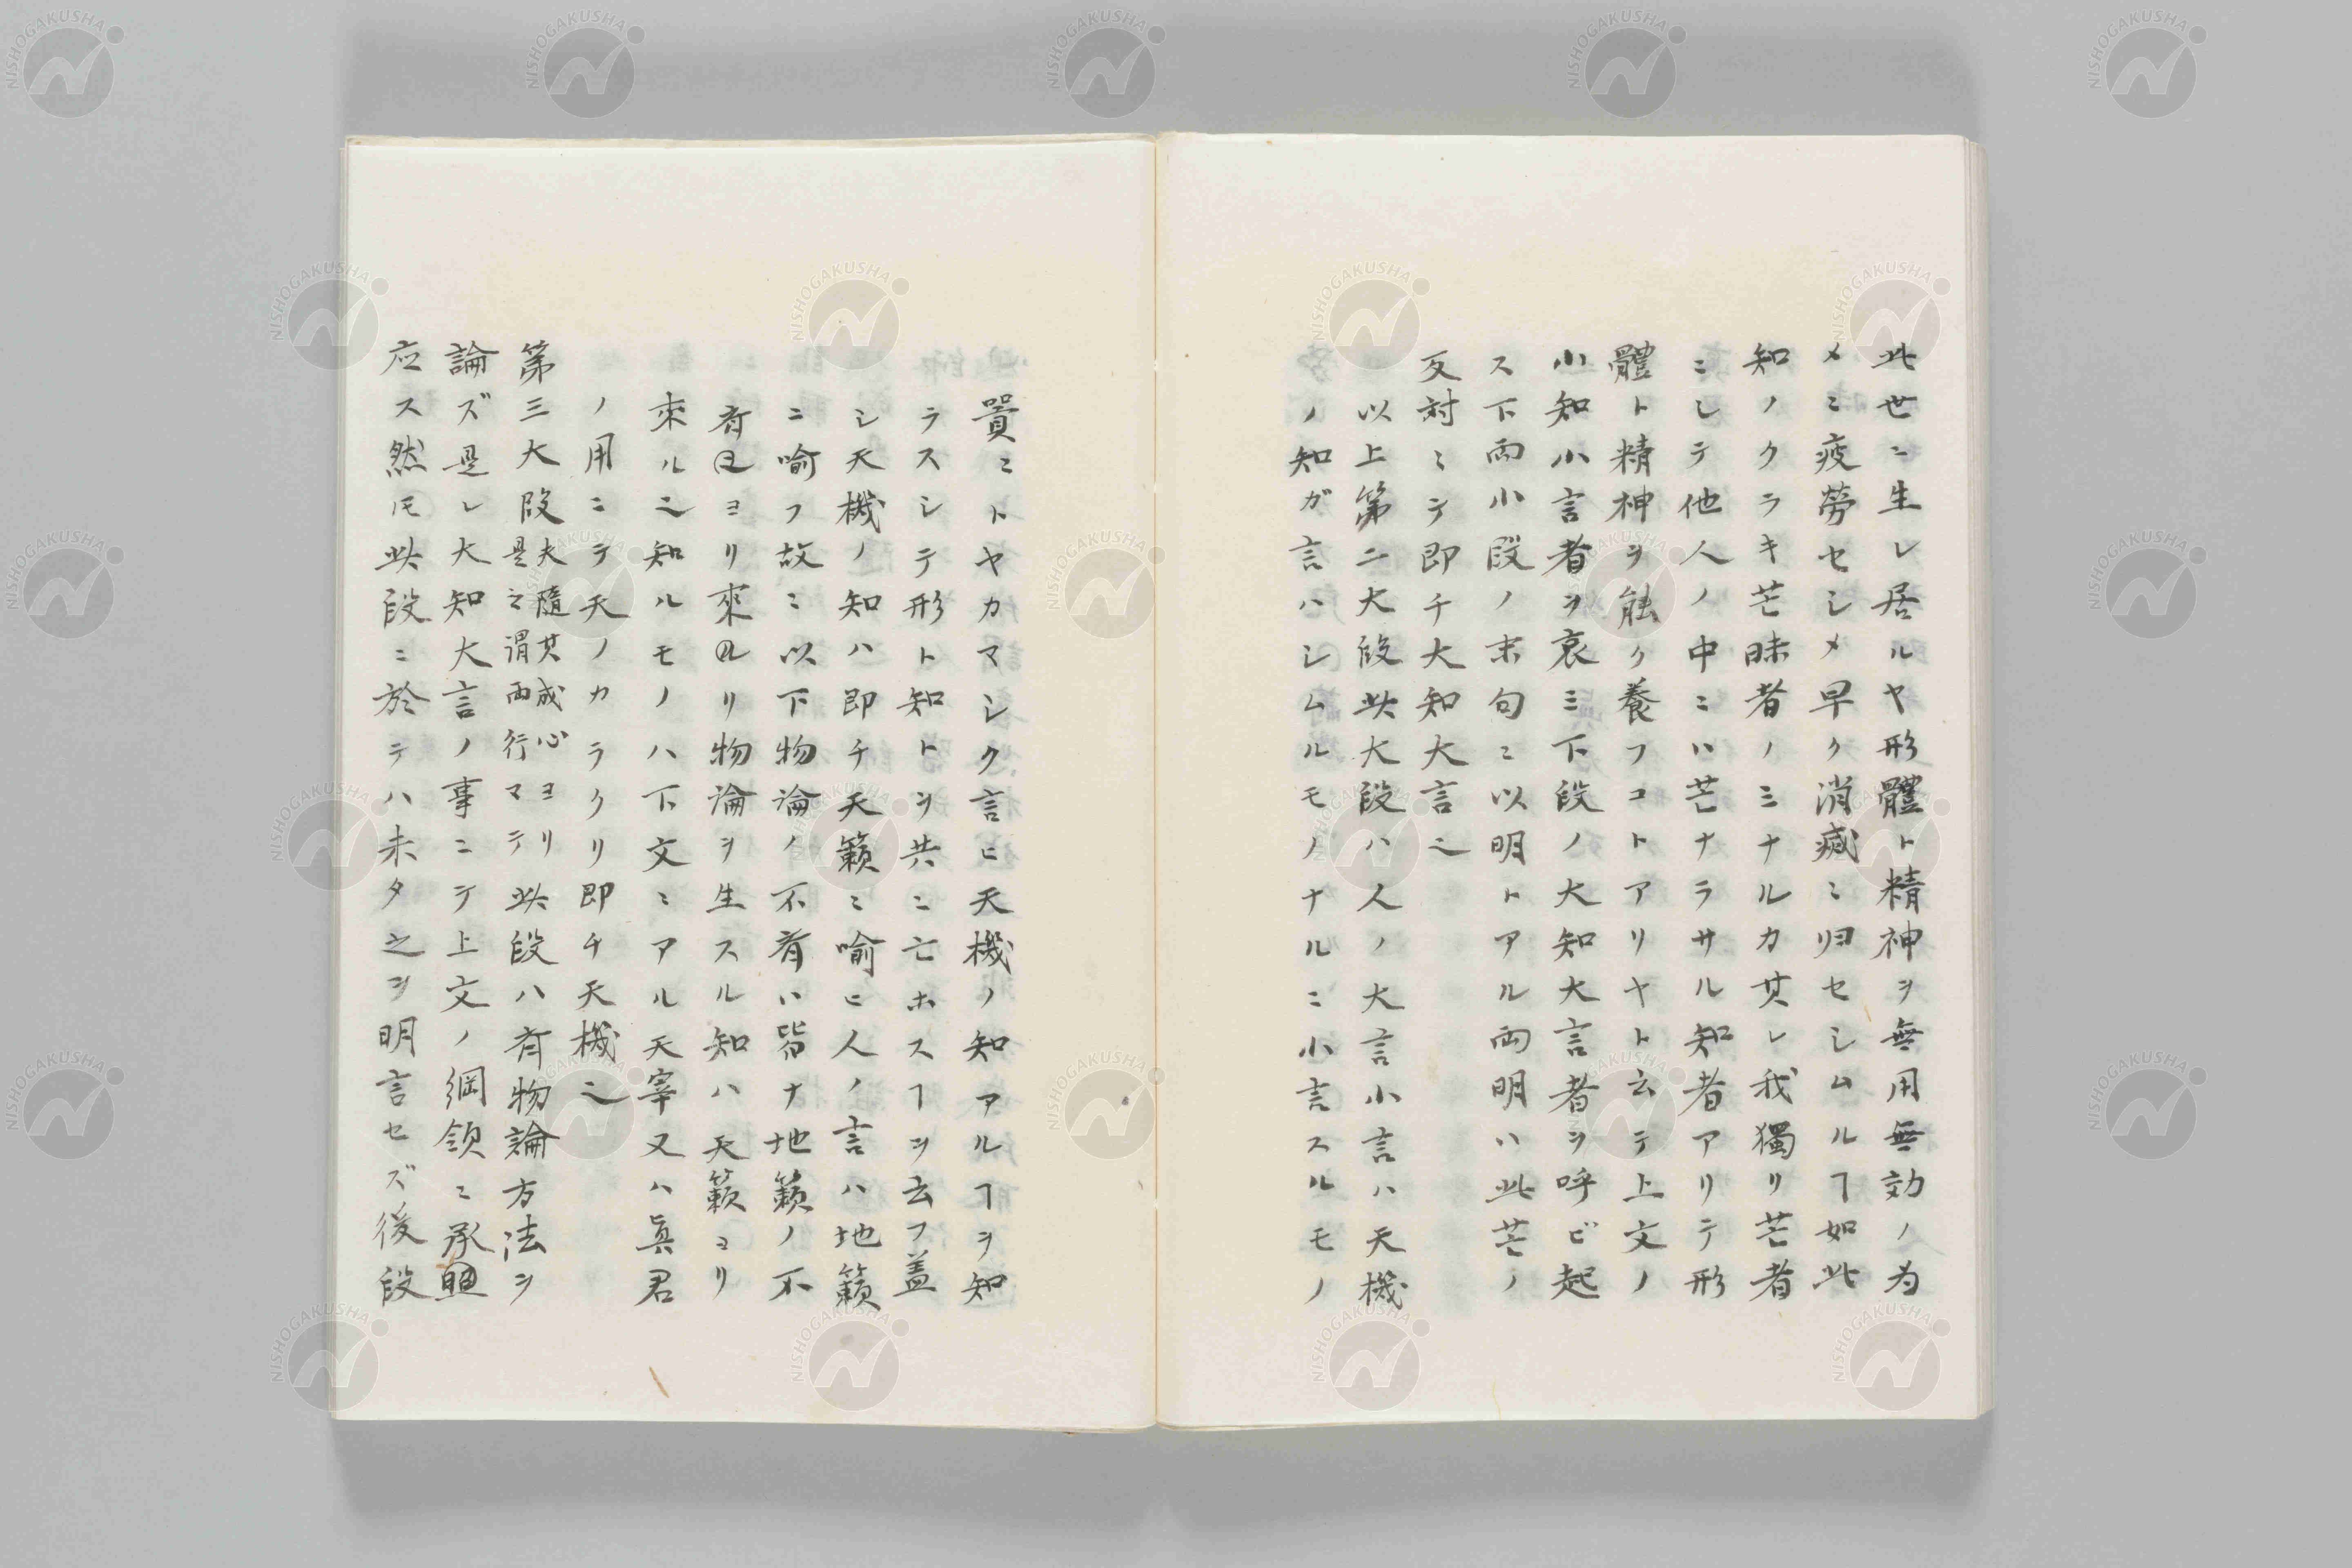 此世ニ生レ居ルヤ形體ト精神ヲ無用無効ノ為
メニ疲勞セシメ早ク消滅ニ歸セシムルヿ如此
知ノクラキ芒昧者ノミナルカ其レ我獨リ芒者
ニシテ他人ノ中ニハ芒ナラサル知者アリテ形
體ト精神ヲ能ク養フコトアリヤト云テ上文ノ
小知小言者ヲ哀ミ下段ノ大知大言者ヲ呼ビ起
ス下両小段ノ末句ニ以明トアル両明ハ此芒ノ
反対ニテ即チ大知大言之
以上第二大段此大段ハ人ノ大言小言ハ天機
ノ知ガ言ハシムルモノナルニ小言スルモノ
嘖ニトヤカマシク言ヒ天機ノ知アルヿヲ知
ラスシテ形ト知トヲ共ニ亡ホスヿヲ云フ盖
シ天機ノ知ハ即チ天籟ニ喻ヒ人ノ言ハ地籟
ニ喻フ故ニ以下物論ノ不有ハ皆ナ地籟ノ不
有ヨリ來リ物論ヲ生スル知ハ天籟ヨリ
來ル之知ルモノハ下文ニアル天宰又ハ眞君
ノ用ニテ天ノカラクリ即チ天機之
第三大段夫隨其成心ヨリ是之謂両行マテ此段ハ斉物論方法ヲ
論ズ是レ大知大言ノ事ニテ上文ノ綱領ニ承照
应ス然モ此段ニ於テハ未タ之ヲ明言セズ後段